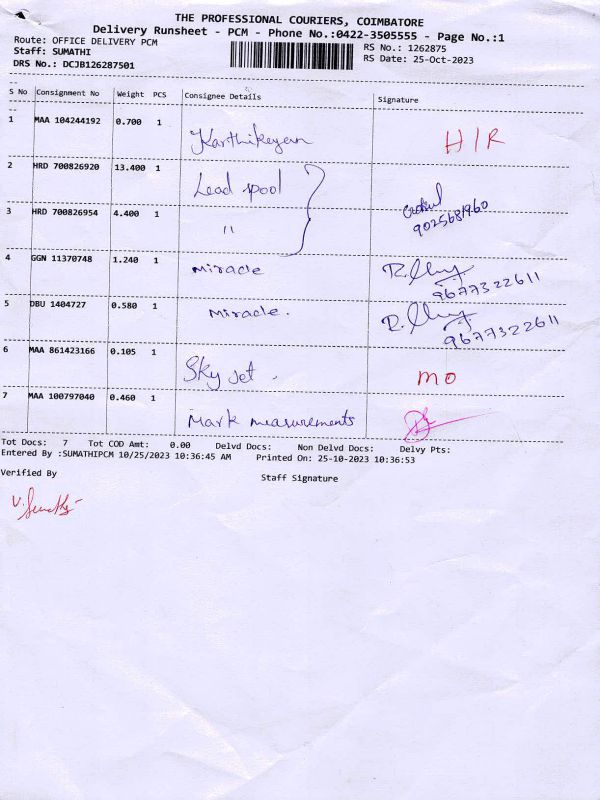 THE PROFESSIONAL COURIERS, COIMBATORE
Delivery Runsheet - PCM - Phone No.:0422-3505555 - Page No.:1
Route: OFFICE DELIVERY PCM
Staff: SUMATHI
DRS No.: DCJB126287501
RS No.: 1262875
RS Date: 25-Oct-2023
S No Consignment No Weight PCS Consignee Details Signature
1 MAA 104244192 0.700 1 Karthikeyan H/R
2 HRD 700826920 13.400 1 Lead spool
3 HRD 700826954 4.400 1 " 9025681960
4 GGN 11370748 1.240 1 miracle 9677322611
5 DBU 1404727 0.580 1 miracle. 9677322611
6 MAA 861423166 0.105 1 Sky Jet. MO
7 MAA 100797040 0.460 1 Mark measurements
Tot Docs: 7 Tot COD Amt: 0.00 Delvd Docs: Non Delvd Docs: Delvy Pts:
Entered By :SUMATHIPCM 10/25/2023 10:36:45 AM Printed On: 25-10-2023 10:36:53
Verified By
Staff Signature